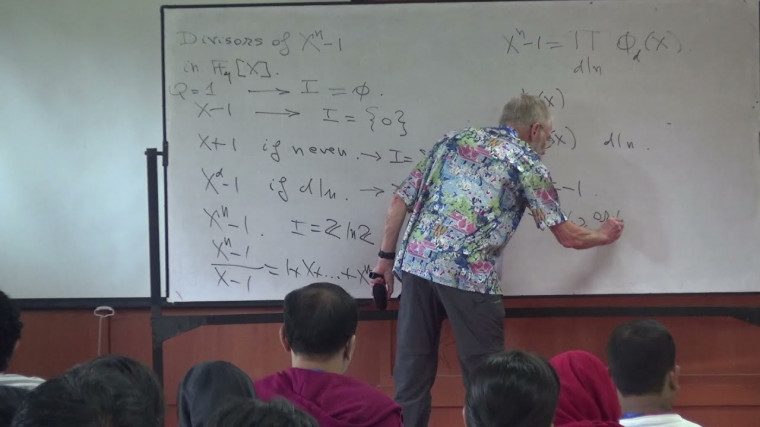 Divisors of Xⁿ-1
in 𝔽q[X].
Q=1 → I = ∅.
X-1 → I = {0}
X+1 if n even. → I =
Xᵈ-1 if d|n. →
Xⁿ-1. I = ℤ/nℤ
Xⁿ-1 / X-1 = 1+X+...+Xⁿ
Xⁿ-1 = ∏ Φd(X).
d|n
(X)
(X) d|n.
-1.